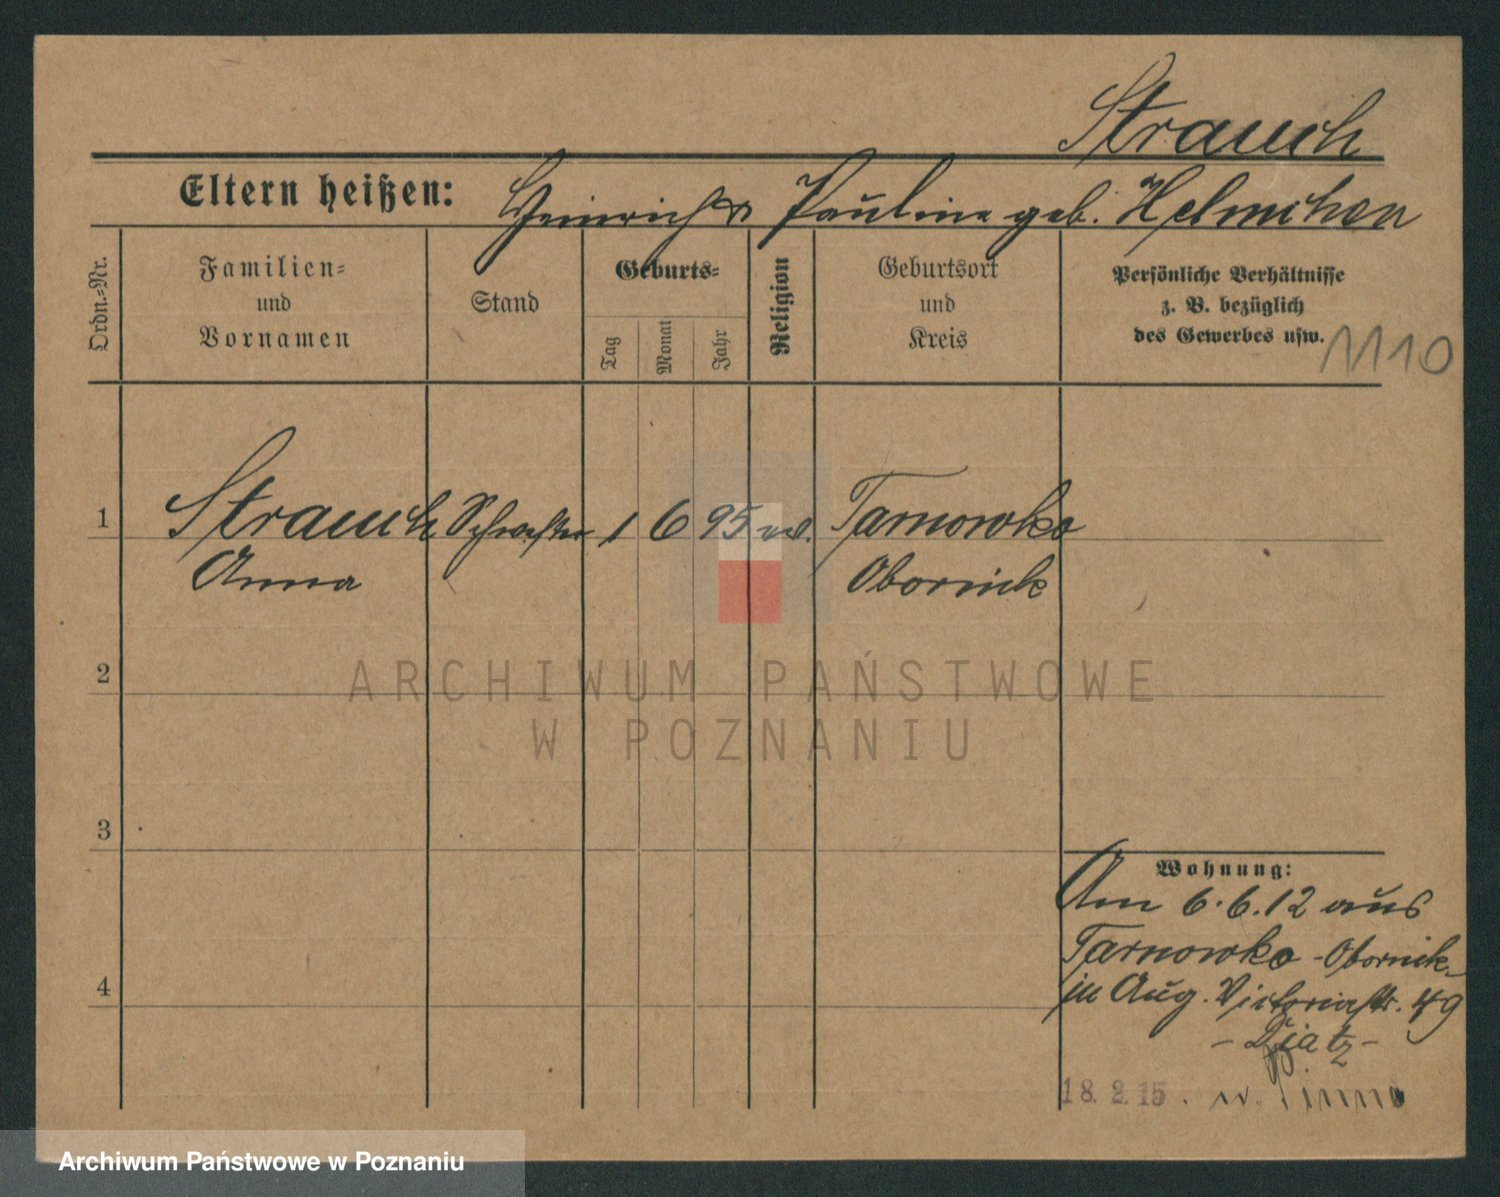 Strauch
Eltern heißen: Heinrich u. Pauline geb. Helmchen
Ordn.-Nr.
Familien-
und
Vornamen
Stand
Geburts-
Tag
Monat
Jahr
Religion
Geburtsort
und
Kreis
Persönliche Verhältnisse
z. B. bezüglich
des Gewerbes usw.
1110
1 Strauch Schwester 1 6 95 ev. Tarnowko
Anna Obornik
2
ARCHIWUM PAŃSTWOWE
W POZNANIU
3
Wohnung:
Am 6.6.12 aus
Tarnowko - Obornik
4
in Aug. Victoriastr. 49
18. 2. 15. n. Pinne
Archiwum Państwowe w Poznaniu